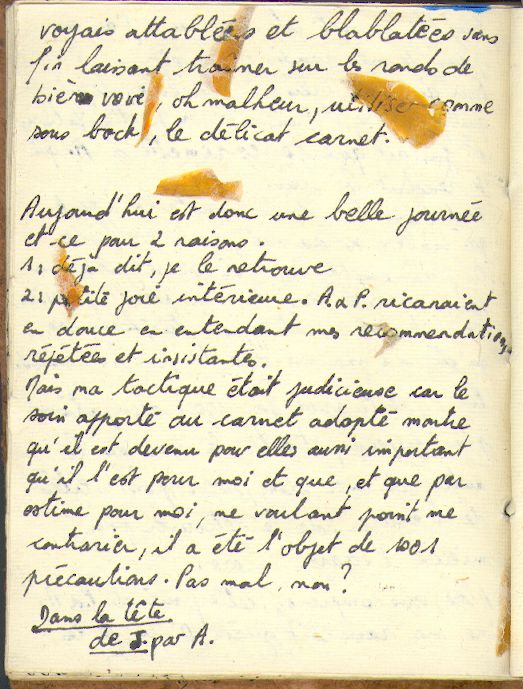 voyais attablées et blablatées sans
fin laissant traîner sur les ronds de
bière voire, oh malheur, utiliser comme
sous bock, le délicat carnet.
Aujourd'hui est donc une belle journée
et ce pour 2 raisons.
1: déjà dit, je le retrouve
2: petite joie intérieure. A. & P. ricanaient
en douce en entendant mes recommendations
répétées et insistantes.
Mais ma tactique était judicieuse car le
soin apporté au carnet adopté montre
qu'il est devenu pour elles aussi important
qu'il l'est pour moi et que, et que par
estime pour moi, ne voulant point me
contrarier, il a été l'objet de 1001
précautions. Pas mal, non?
Dans la tête
de J. par A.